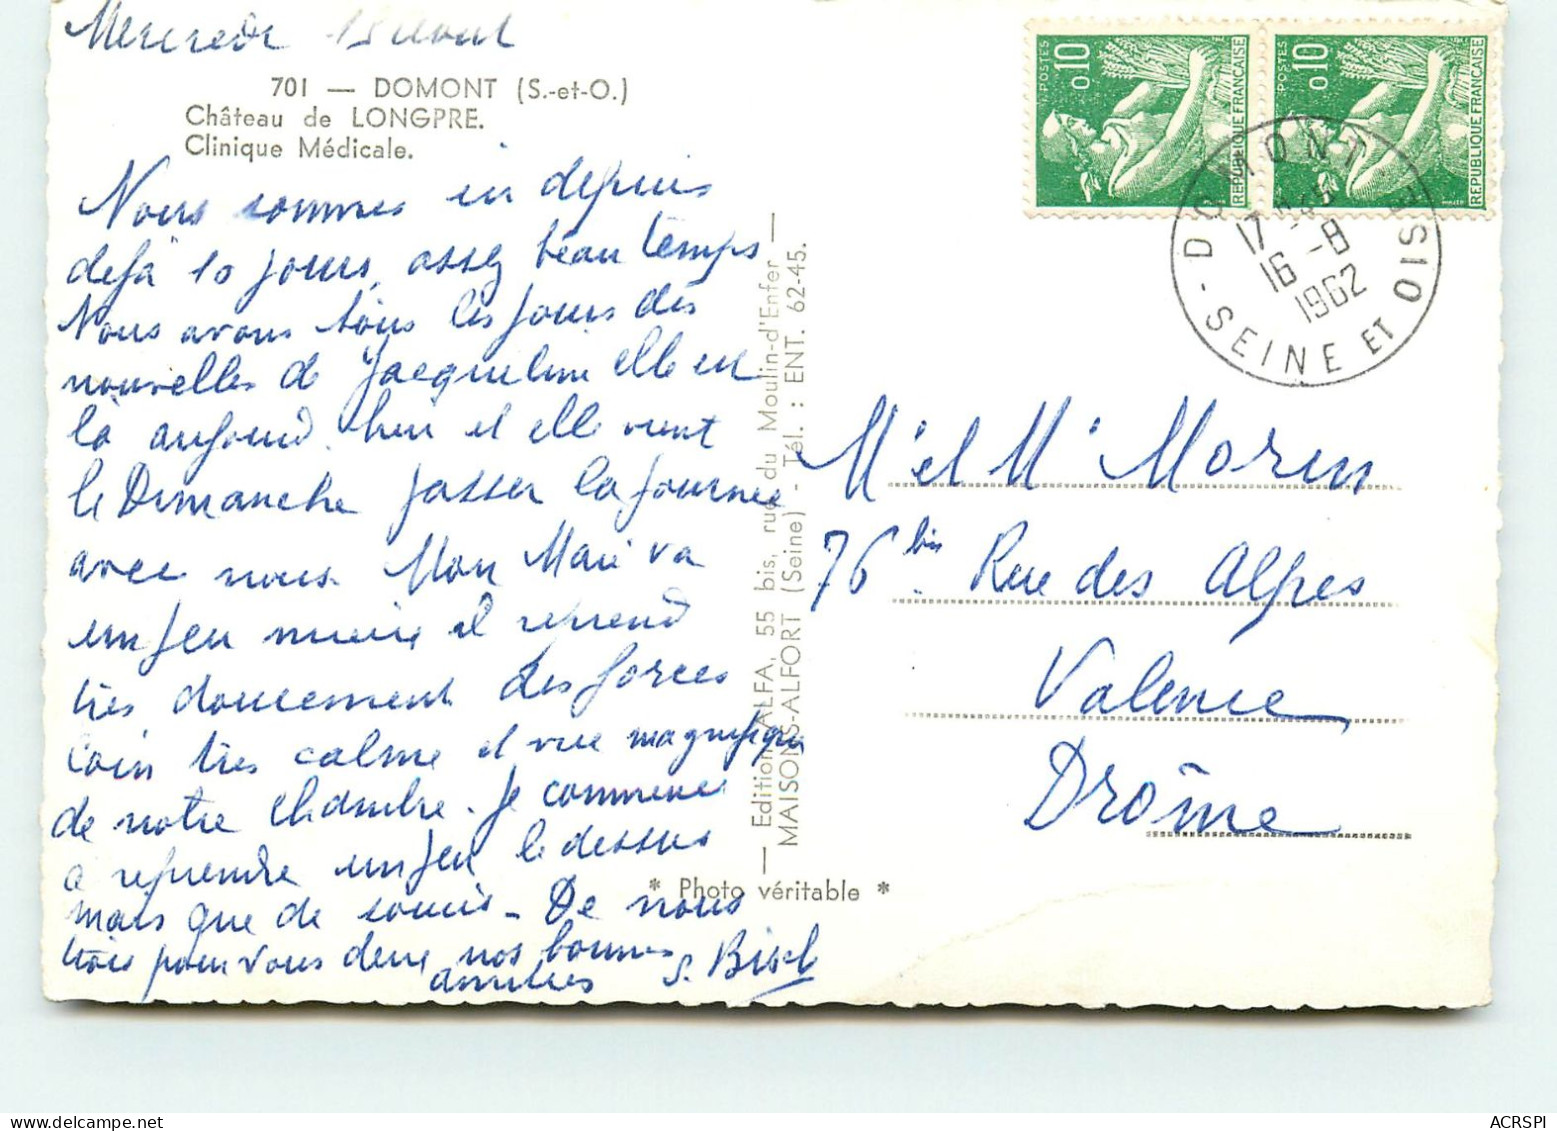 Mercredi 15 Aout
701 — DOMONT (S.-et-O.)
Château de LONGPRE.
Clinique Médicale.
Nous sommes ici depuis
déjà 10 jours, assez beau temps
Nous avons tous les jours des
nouvelles de Jacqueline elle est
là aujourd'hui et elle vient
le Dimanche passer la journée
avec nous. Mon Mari va
un peu mieux il reprend
très doucement des forces
coin très calme et vue magnifique
de notre chambre. je commence
a reprendre un peu le dessus
mais que de soucis - De nous
trois pour vous deux nos bonnes
amitiés S.
— Edition ALFA, 55 bis, rue du Moulin-d'Enfer —
MAISONS-ALFORT (Seine) - Tél. : ENT. 62-45.
* Photo véritable *
POSTES 0,10 REPUBLIQUE FRANÇAISE
POSTES 0,10 REPUBLIQUE FRANÇAISE
DOMONT
17
16 -8
1962
SEINE ET OISE
Mr et Me Morin
76 bis Rue des Alpes
Valence
Drôme
ACRSPI